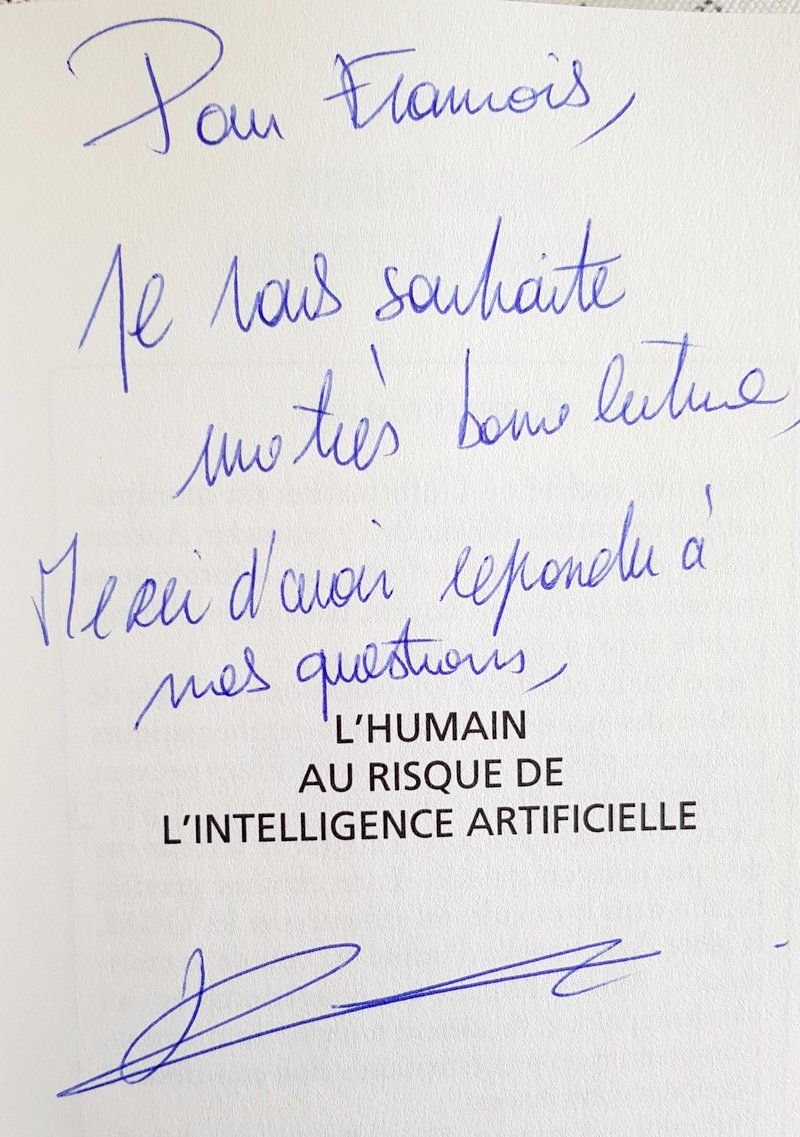 Pour François,
Je vous souhaite
une très bonne lecture,
Merci d'avoir repondu à
mes questions,
L'HUMAIN
AU RISQUE DE
L'INTELLIGENCE ARTIFICIELLE